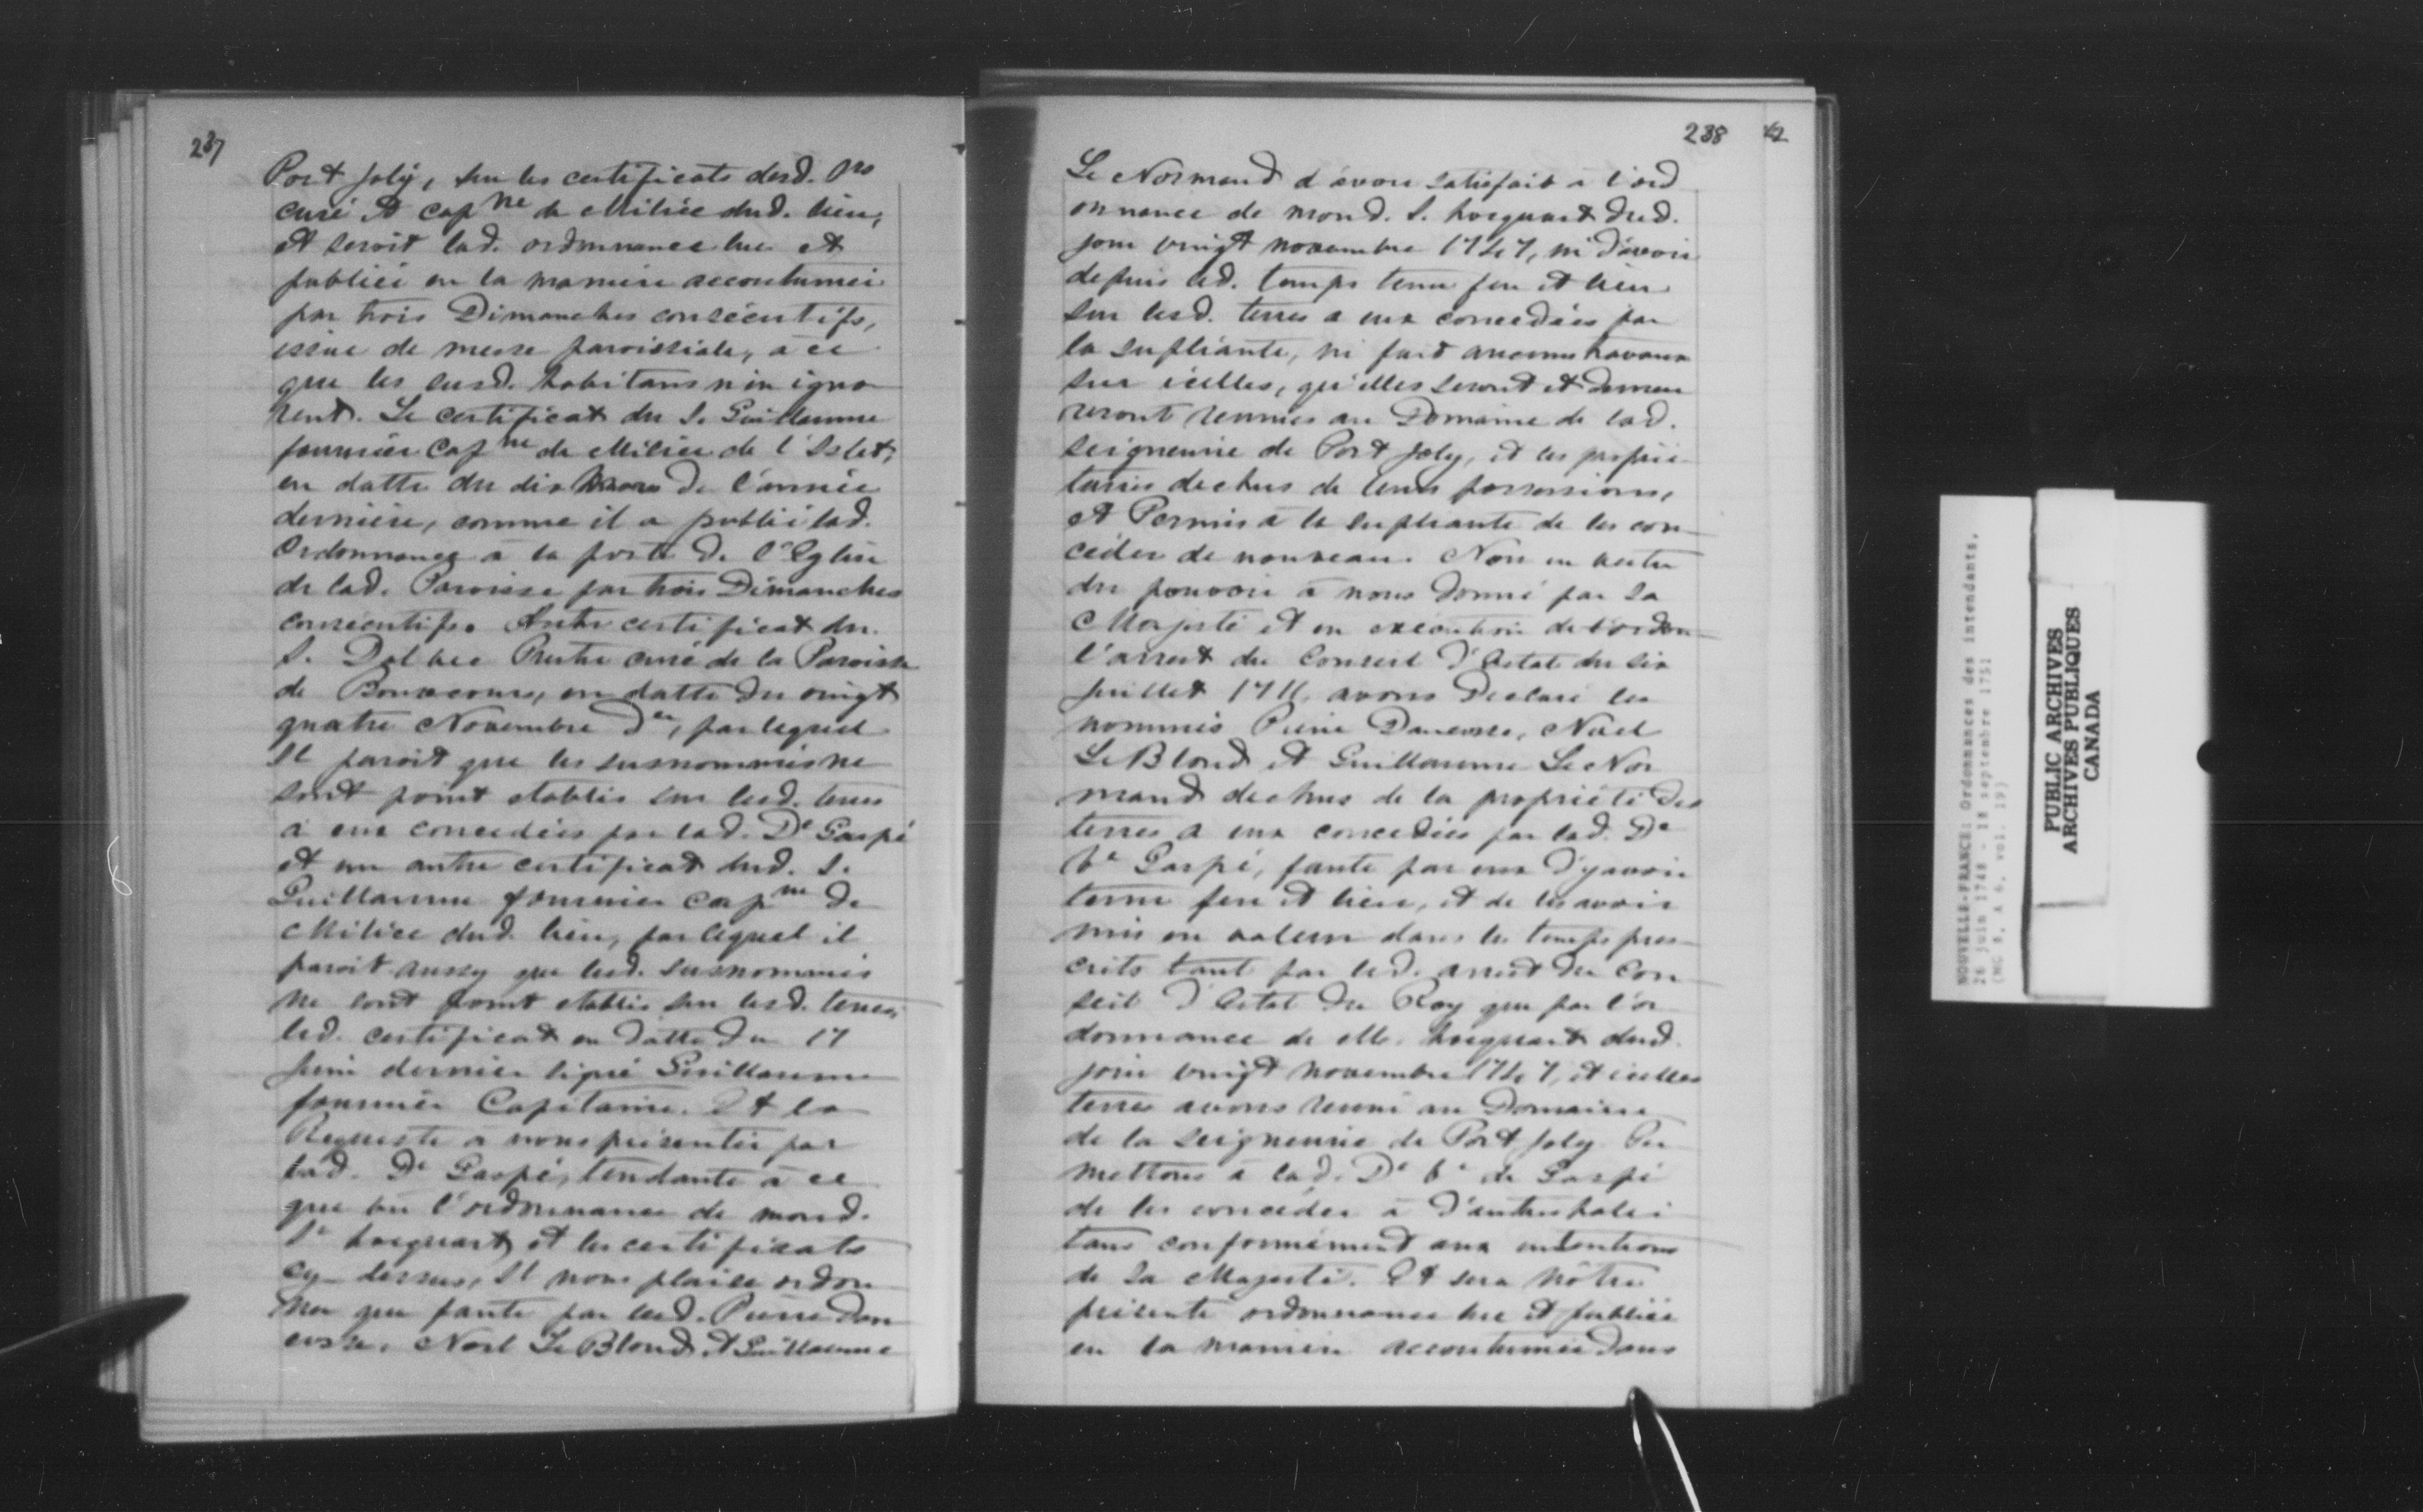 237
Port Joly, sur les certificats desd. Srs
curé et capne de Milice dud. lieu,
et seroit lad. ordonnance lue et
publiée en la manière accoutumée
par trois Dimanches consécutifs,
issue de messe paroissiale, à ce
que les susd. habitans n'en igno
rent. Le certificat du S. Guillaume
fournier Capne de Milice de l'Islet,
en datte du dix mars de l'année
dernière, comme il a publié lad.
Ordonnance à la porte de l'Eglise
de lad. Paroisse par trois Dimanches
consécutifs. Autre certificat du
S. Dolbec Prestre curé de la Paroisse
de Bonsecours, en datte du vingt
quatre Novembre der, par lequel
Il paroit que les susnommés ne
sont point etablis sur lesd. terres
à eux concedées par lad. De Gaspé
et un autre certificat dud. S.
Guillaume fournier capne de
Milice dud. lieu, par lequel il
paroit aussy que lesd. susnommés
ne sont point etablis sur lesd. terres,
led. certificat en datte du 17
juin dernier signé Guillaume
fournier Capitaine. Et la
Requeste à nous présentée par
lad. De Gaspé, tendante à ce
que vu l'ordonnance de mond.
Sr hocquart et les certificats
cy-dessus, Il nous plaise ordon
ner que faute par lesd. Pierre Dan
cosse, Noel Le Blond et Guillaume
238 42
Le Normand d'avoir satisfait à l'ord
onnance de mond. S. hocquart dud.
jour vingt novembre 1747, ni d'avoir
depuis led. temps tenu feu et lieu
sur lesd. terres a eux concedées par
la supliante, ni fait aucuns travaux
sur icelles, qu'elles seront et demeu
reront reunies au Domaine de lad.
seigneurie de Port Joly, et les proprié
taires dechus de leurs possessions,
et Permis à la supliante de les con
céder de nouveau. Nous en vertu
du pouvoir à nous donné par Sa
Majesté et en execution de l'ordon
l'arrest du Conseil d'Estat du six
juillet 1711, avons Declaré les
nommés Pierre Dancosse, Noël
Le Blond et Guillaume Le Nor
mand dechus de la propriété des
terres a eux concedées par lad. De
Ve Gaspé, faute par eux d'y avoir
tenu feu et lieu, et de les avoir
mis en valeur dans les temps pres
crits tant par led. arrest du Con
seil d'Estat du Roy que par l'or
donnance de M. hocquart dud.
jour vingt novembre 1747, et icelles
terres avons reuni au Domaine
de la seigneurie de Port Joly Per
mettons à lad. De Ve de Gaspé
de les concéder à d'autres habi
tans conformément aux intentions
de Sa Majesté. Et sera nôtre
présente ordonnance lue et publiée
en la manière accoutumée dans
NOUVELLE-FRANCE: Ordonnances des intendants,
26 juin 1748 - 18 septembre 1751
(MG 8, A 6, vol. 19)
PUBLIC ARCHIVES
ARCHIVES PUBLIQUES
CANADA